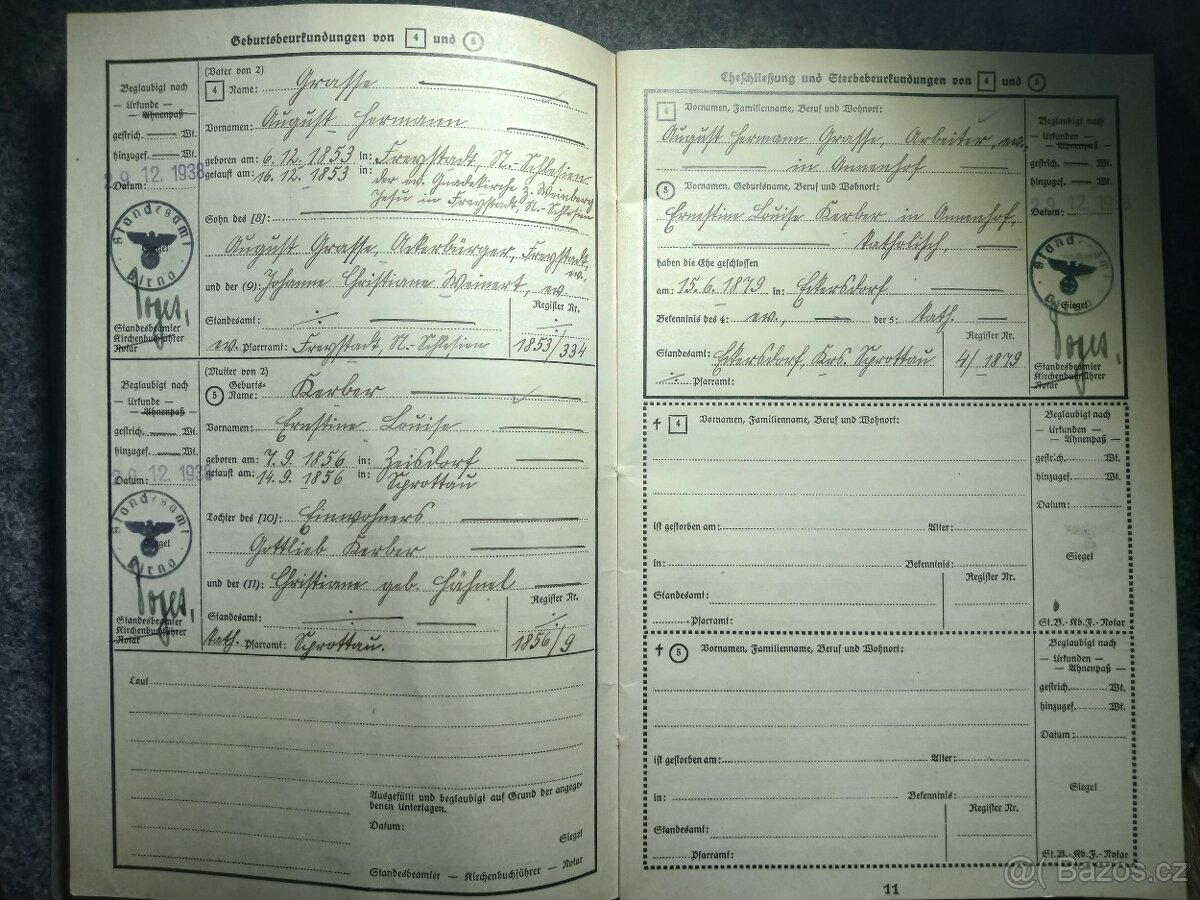 Geburtsbeurkundungen von 4 und 5
Beglaubigt nach
— Urkunde —
— Ahnenpaß
gestrich. Wt.
hinzugef. Wt.
29. 12. 1938
Datum:
Standesamt
Siegel
Pirna
Standesbeamter
Kirchenbuchführer
Notar
(Vater von 2)
4 Name: Grasse
Vornamen: August Hermann
geboren am: 6.12.1853 in: Freystadt, N.-Schlesien
getauft am: 16.12.1853 in: der ev. Gnadenkirche z. Weinberg
Jesu in Freystadt, N.-Schlesien
Sohn des [8]:
August Grasse, Ackerbürger, Freystadt,
ev.,
und der (9): Johanne Christiane Weinert, ev.
Standesamt: Register Nr.
ev. Pfarramt: Freystadt, N.-Schlesien 1853/334
Beglaubigt nach
— Urkunde —
— Ahnenpaß
gestrich. Wt.
hinzugef. Wt.
29. 12. 1938
Datum:
Standesamt
Siegel
Pirna
Standesbeamter
Kirchenbuchführer
Notar
(Mutter von 2)
5 Geburts-
Name: Kerber
Vornamen: Ernstine Louise
geboren am: 7.9.1856 in: Zeisdorf
getauft am: 14.9.1856 in: Sprottau
Tochter des [10]: Einwohners
Gottlieb Kerber
und der (11): Christiane geb. Hähnel
Standesamt: Register Nr.
kath. Pfarramt: Sprottau. 1856/9
Laut
Ausgefüllt und beglaubigt auf Grund der angege-
benen Unterlagen.
Datum:
Siegel
Standesbeamter — Kirchenbuchführer — Notar
Eheschließung und Sterbebeurkundungen von 4 und 5
4 Vornamen, Familienname, Beruf und Wohnort:
August Hermann Grasse, Arbeiter, ev.,
in Annenhof
5 Vornamen, Geburtsname, Beruf und Wohnort:
Ernestine Louise Kerber in Annenhof,
katholisch,
haben die Ehe geschlossen
am: 15.6.1879 in: Eckersdorf
Bekenntnis des 4: ev., der 5: kath.
Register Nr.
Standesamt: Eckersdorf, Krs. Sprottau 4/1879
Pfarramt:
Beglaubigt nach
— Urkunden —
— Ahnenpaß —
gestrich. Wt.
hinzugef. Wt.
29. 12. 1938
Datum:
Standesamt
Siegel
Standesbeamter
Kirchenbuchführer
Notar
† 4 Vornamen, Familienname, Beruf und Wohnort:
ist gestorben am: Alter:
in: Bekenntnis:
Register Nr.
Standesamt:
Pfarramt:
Beglaubigt nach
— Urkunden —
— Ahnenpaß —
gestrich. Wt.
hinzugef. Wt.
Datum:
Siegel
St.B.-Kb.F.-Notar
† 5 Vornamen, Familienname, Beruf und Wohnort:
ist gestorben am: Alter:
in: Bekenntnis:
Register Nr.
Standesamt:
Pfarramt:
Beglaubigt nach
— Urkunden —
— Ahnenpaß —
gestrich. Wt.
hinzugef. Wt.
Datum:
Siegel
St.B.-Kb.F.-Notar
11
Bazos.cz